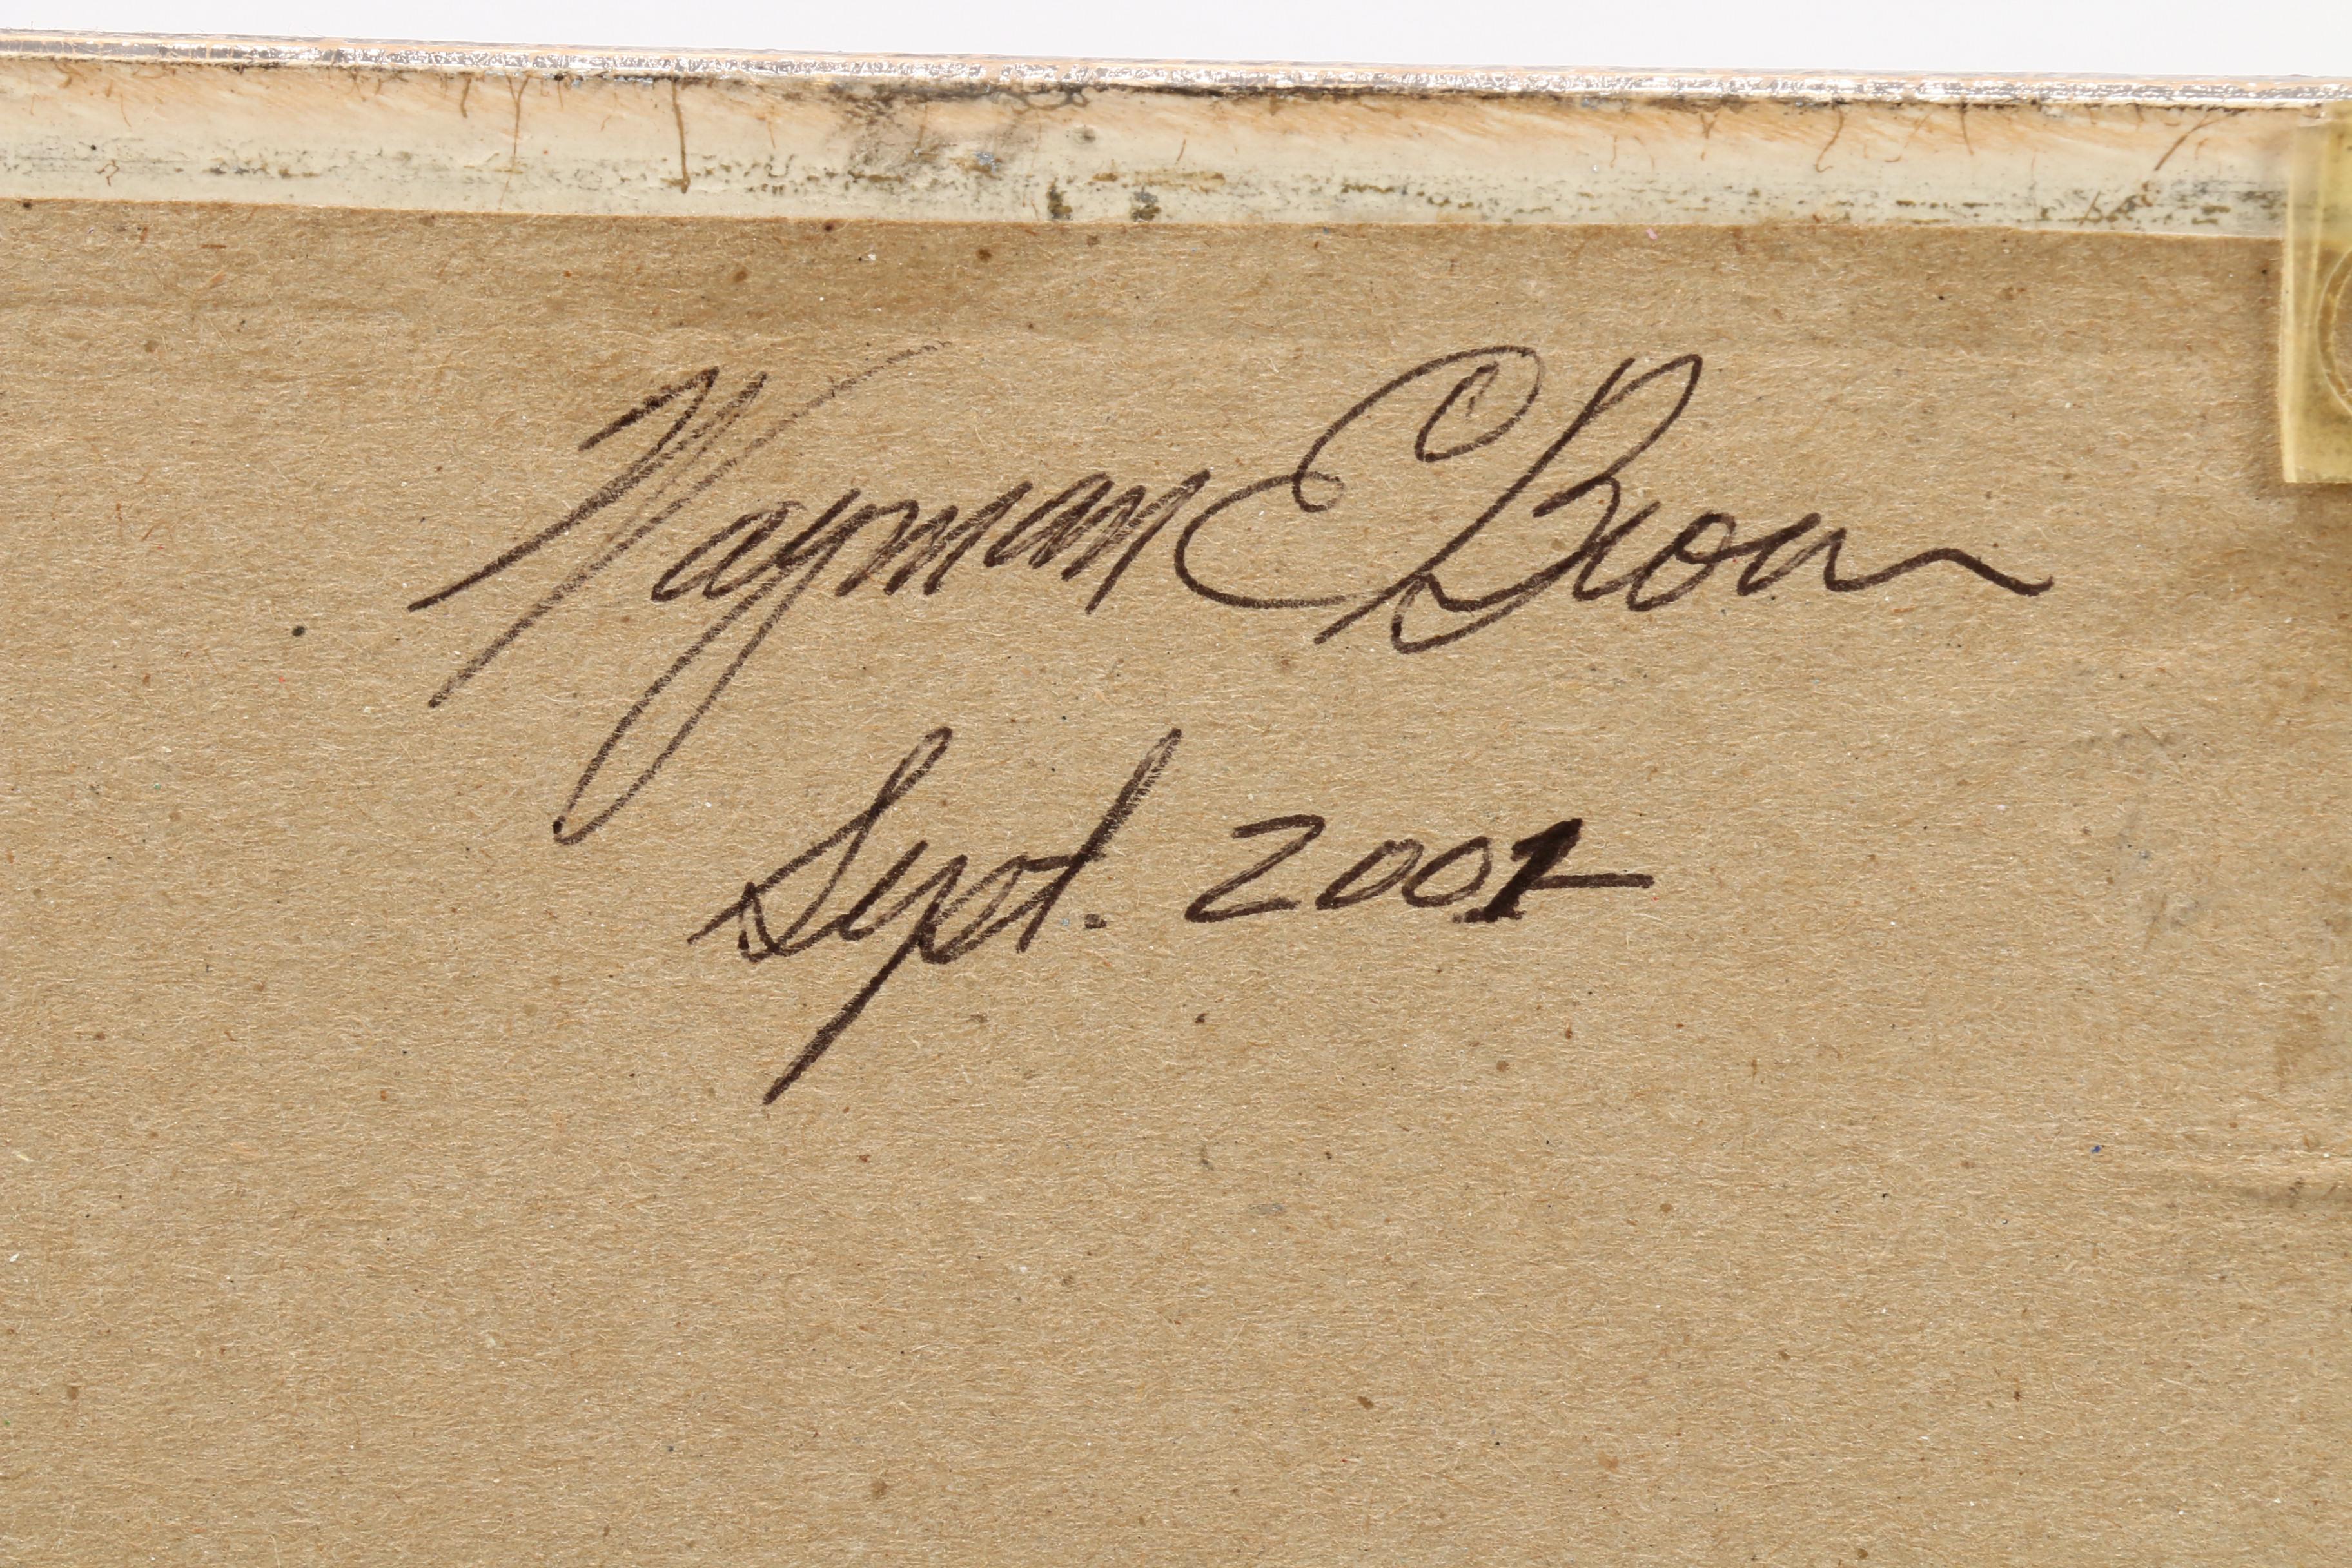 Wayman E Brown
Sept. 2001